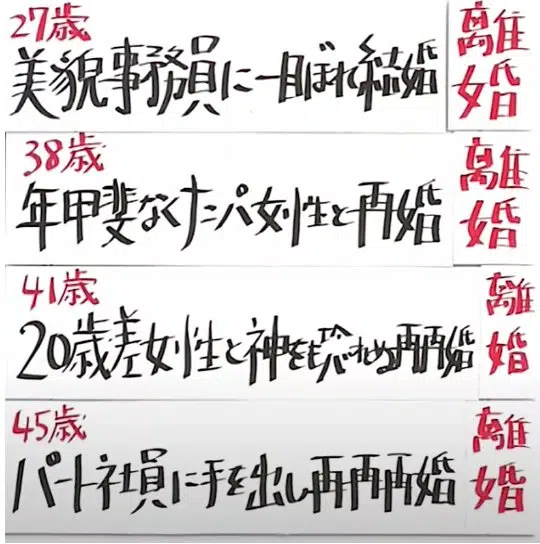 27歳
美貌事務員に一目ぼれ結婚
離婚
38歳
年甲斐なくナンパ女性と再婚
離婚
41歳
20歳差女性と神をも恐れぬ再再婚
離婚
45歳
パート社員に手を出し再再再婚
離婚